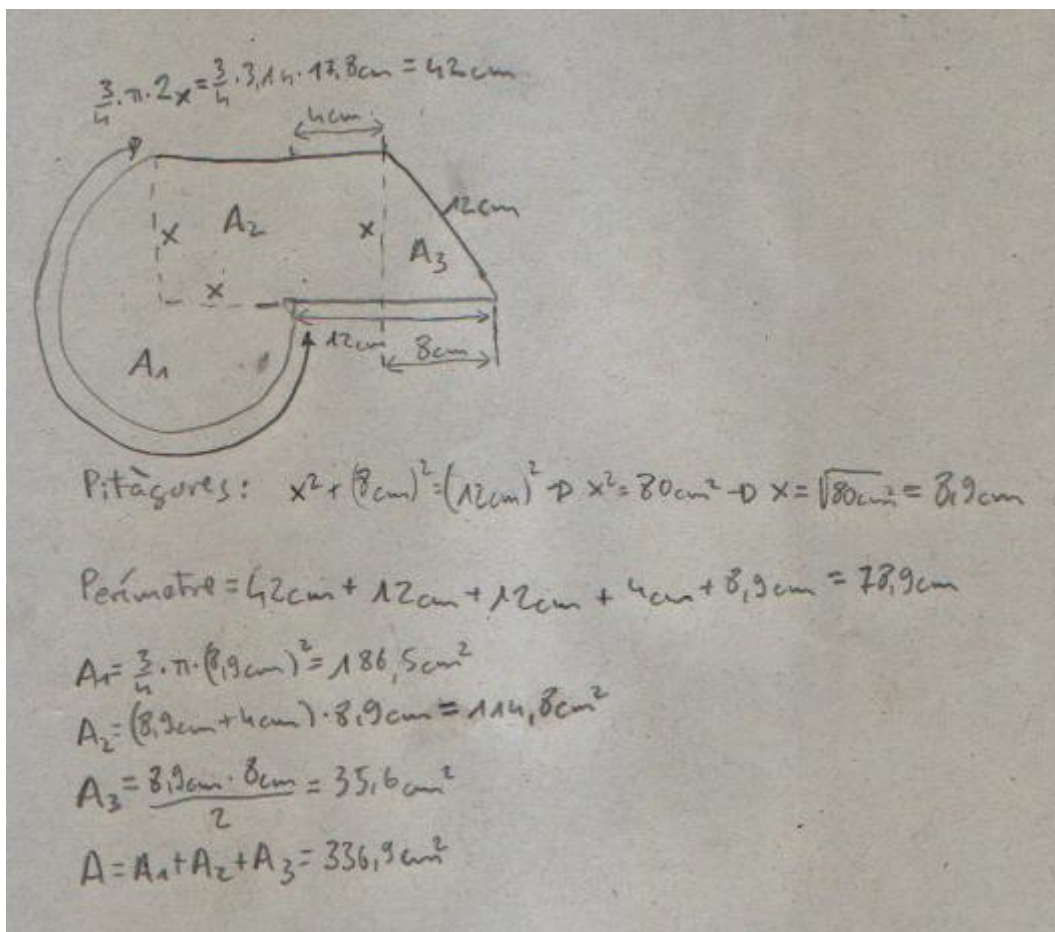 3/4 · π · 2x = 3/4 · 3,14 · 17,8cm = 42cm
4cm
12cm
A₂
x
x
A₃
x
12cm
8cm
A₁
Pitàgores: x² + (8cm)² = (12cm)² → x² = 80cm² → x = √80cm² = 8,9cm
Perímetre = 42cm + 12cm + 12cm + 4cm + 8,9cm = 78,9cm
A₁ = 3/4 · π · (8,9cm)² = 186,5cm²
A₂ = (8,9cm + 4cm) · 8,9cm = 114,8cm²
A₃ = 8,9cm · 8cm / 2 = 35,6cm²
A = A₁ + A₂ + A₃ = 336,9cm²